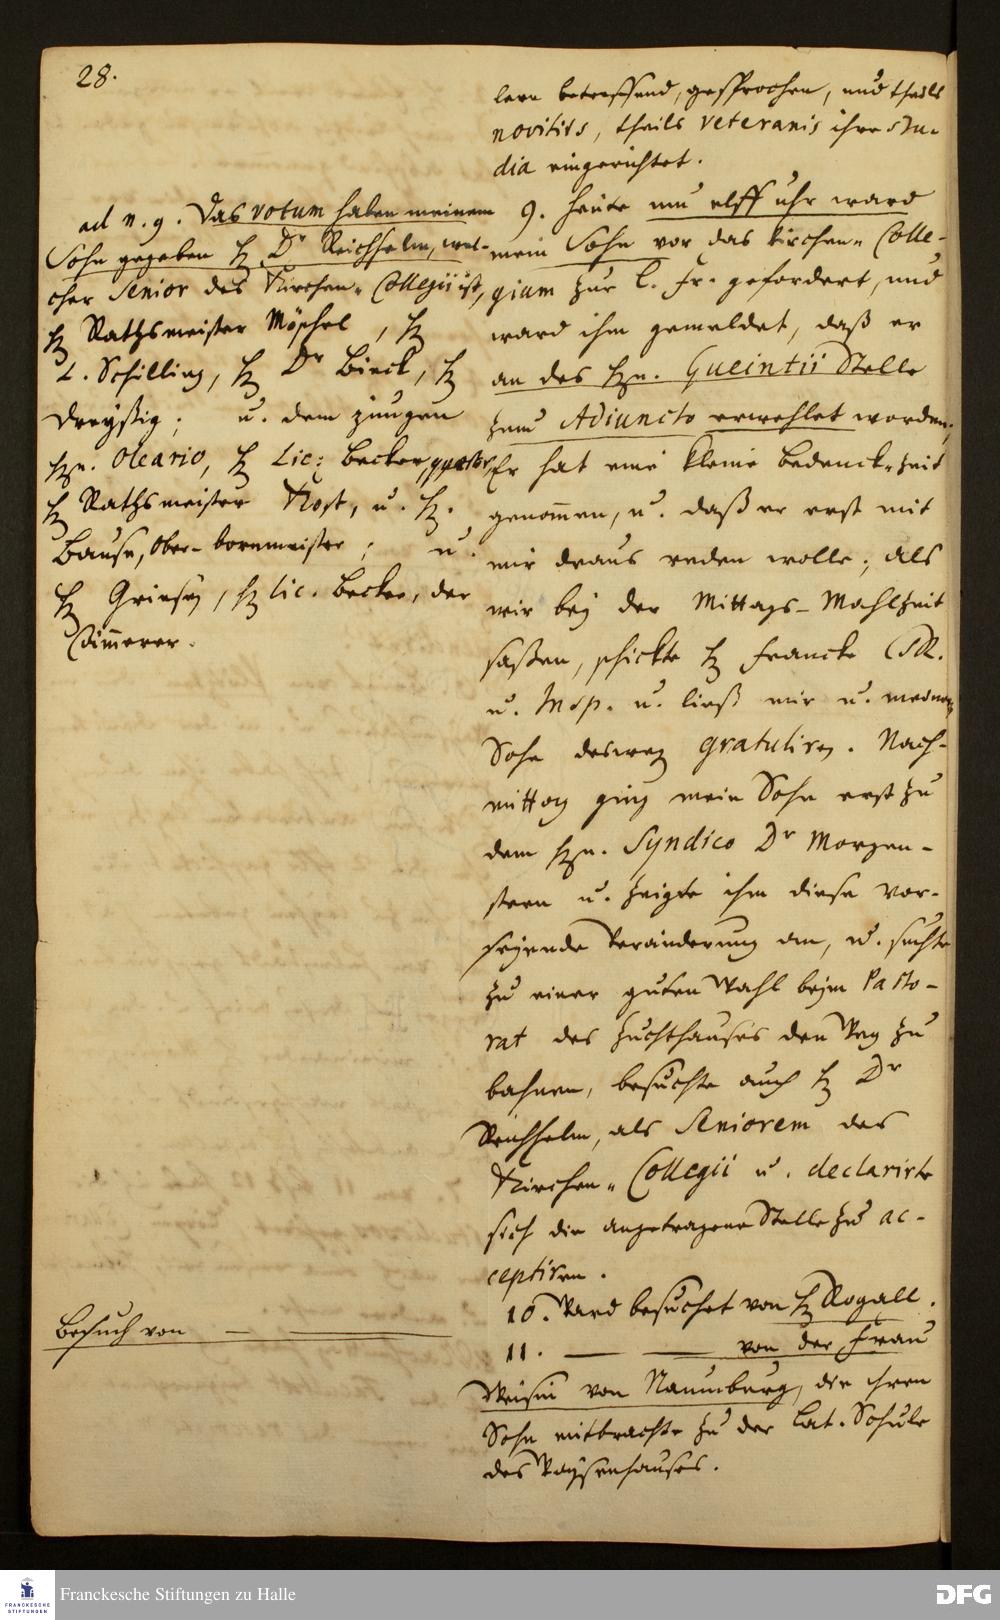 28.
ad n. 9. Das votum haben meinem
Sohn gegeben H. Dr Reichhelm, wel-
cher Senior des Kirchen-Collegii ist,
H. Rathsmeister Möschel, H.
L. Schilling, H. Dr Bieck, H.
Dreyßig; u. dem jungen
Hn. Oleario, H. Lic: Becker
H. Rathsmeister Kost, u. H.
Bause, Ober-bornmeister; u.
H. Lic. Becker, der
Cämmerer.
Besuch von — —
lern betreffend, gesprochen, und theils
novitiis, theils veteranis ihre stu-
dia eingerichtet.
9. Heute um elff uhr ward
mein Sohn vor das Kirchen-Colle-
gium zur L. Fr. gefordert, und
ward ihm gemeldet, daß er
an des Hn. Gueintii Stelle
zum Adiuncto erwehlet worden;
Er hat eine kleine bedenck-zeit
genommen, u. daß er erst mit
mir draus reden wolle; als
wir bey der Mittags-Mahlzeit
saßen, schickte H. Francke
u. ließ mir u. meinem
Sohn desweg gratuliren. Nach-
mittag ging mein Sohn erst zu
dem Hn. Syndico Dr Morgen-
stern u. zeigte ihm diese vor-
seyende Veränderung an, u. suchte
zu einer guten Wahl beym Pasto-
rat des Zuchthauses den Weg zu
bahnen, besuchte auch H. Dr
Reichhelm, als Seniorem des
Kirchen-Collegii u. declarirte
sich die angetragene Stelle zu ac-
ceptiren.
10. Ward besuchet von H. Rogall.
11. — — von der Frau
Weisin von Naumburg, die ihren
Sohn mitbrachte zu der Lat. Schule
des Waysenhauses.
FRANCKESCHE
STIFTUNGEN
Franckesche Stiftungen zu Halle
DFG